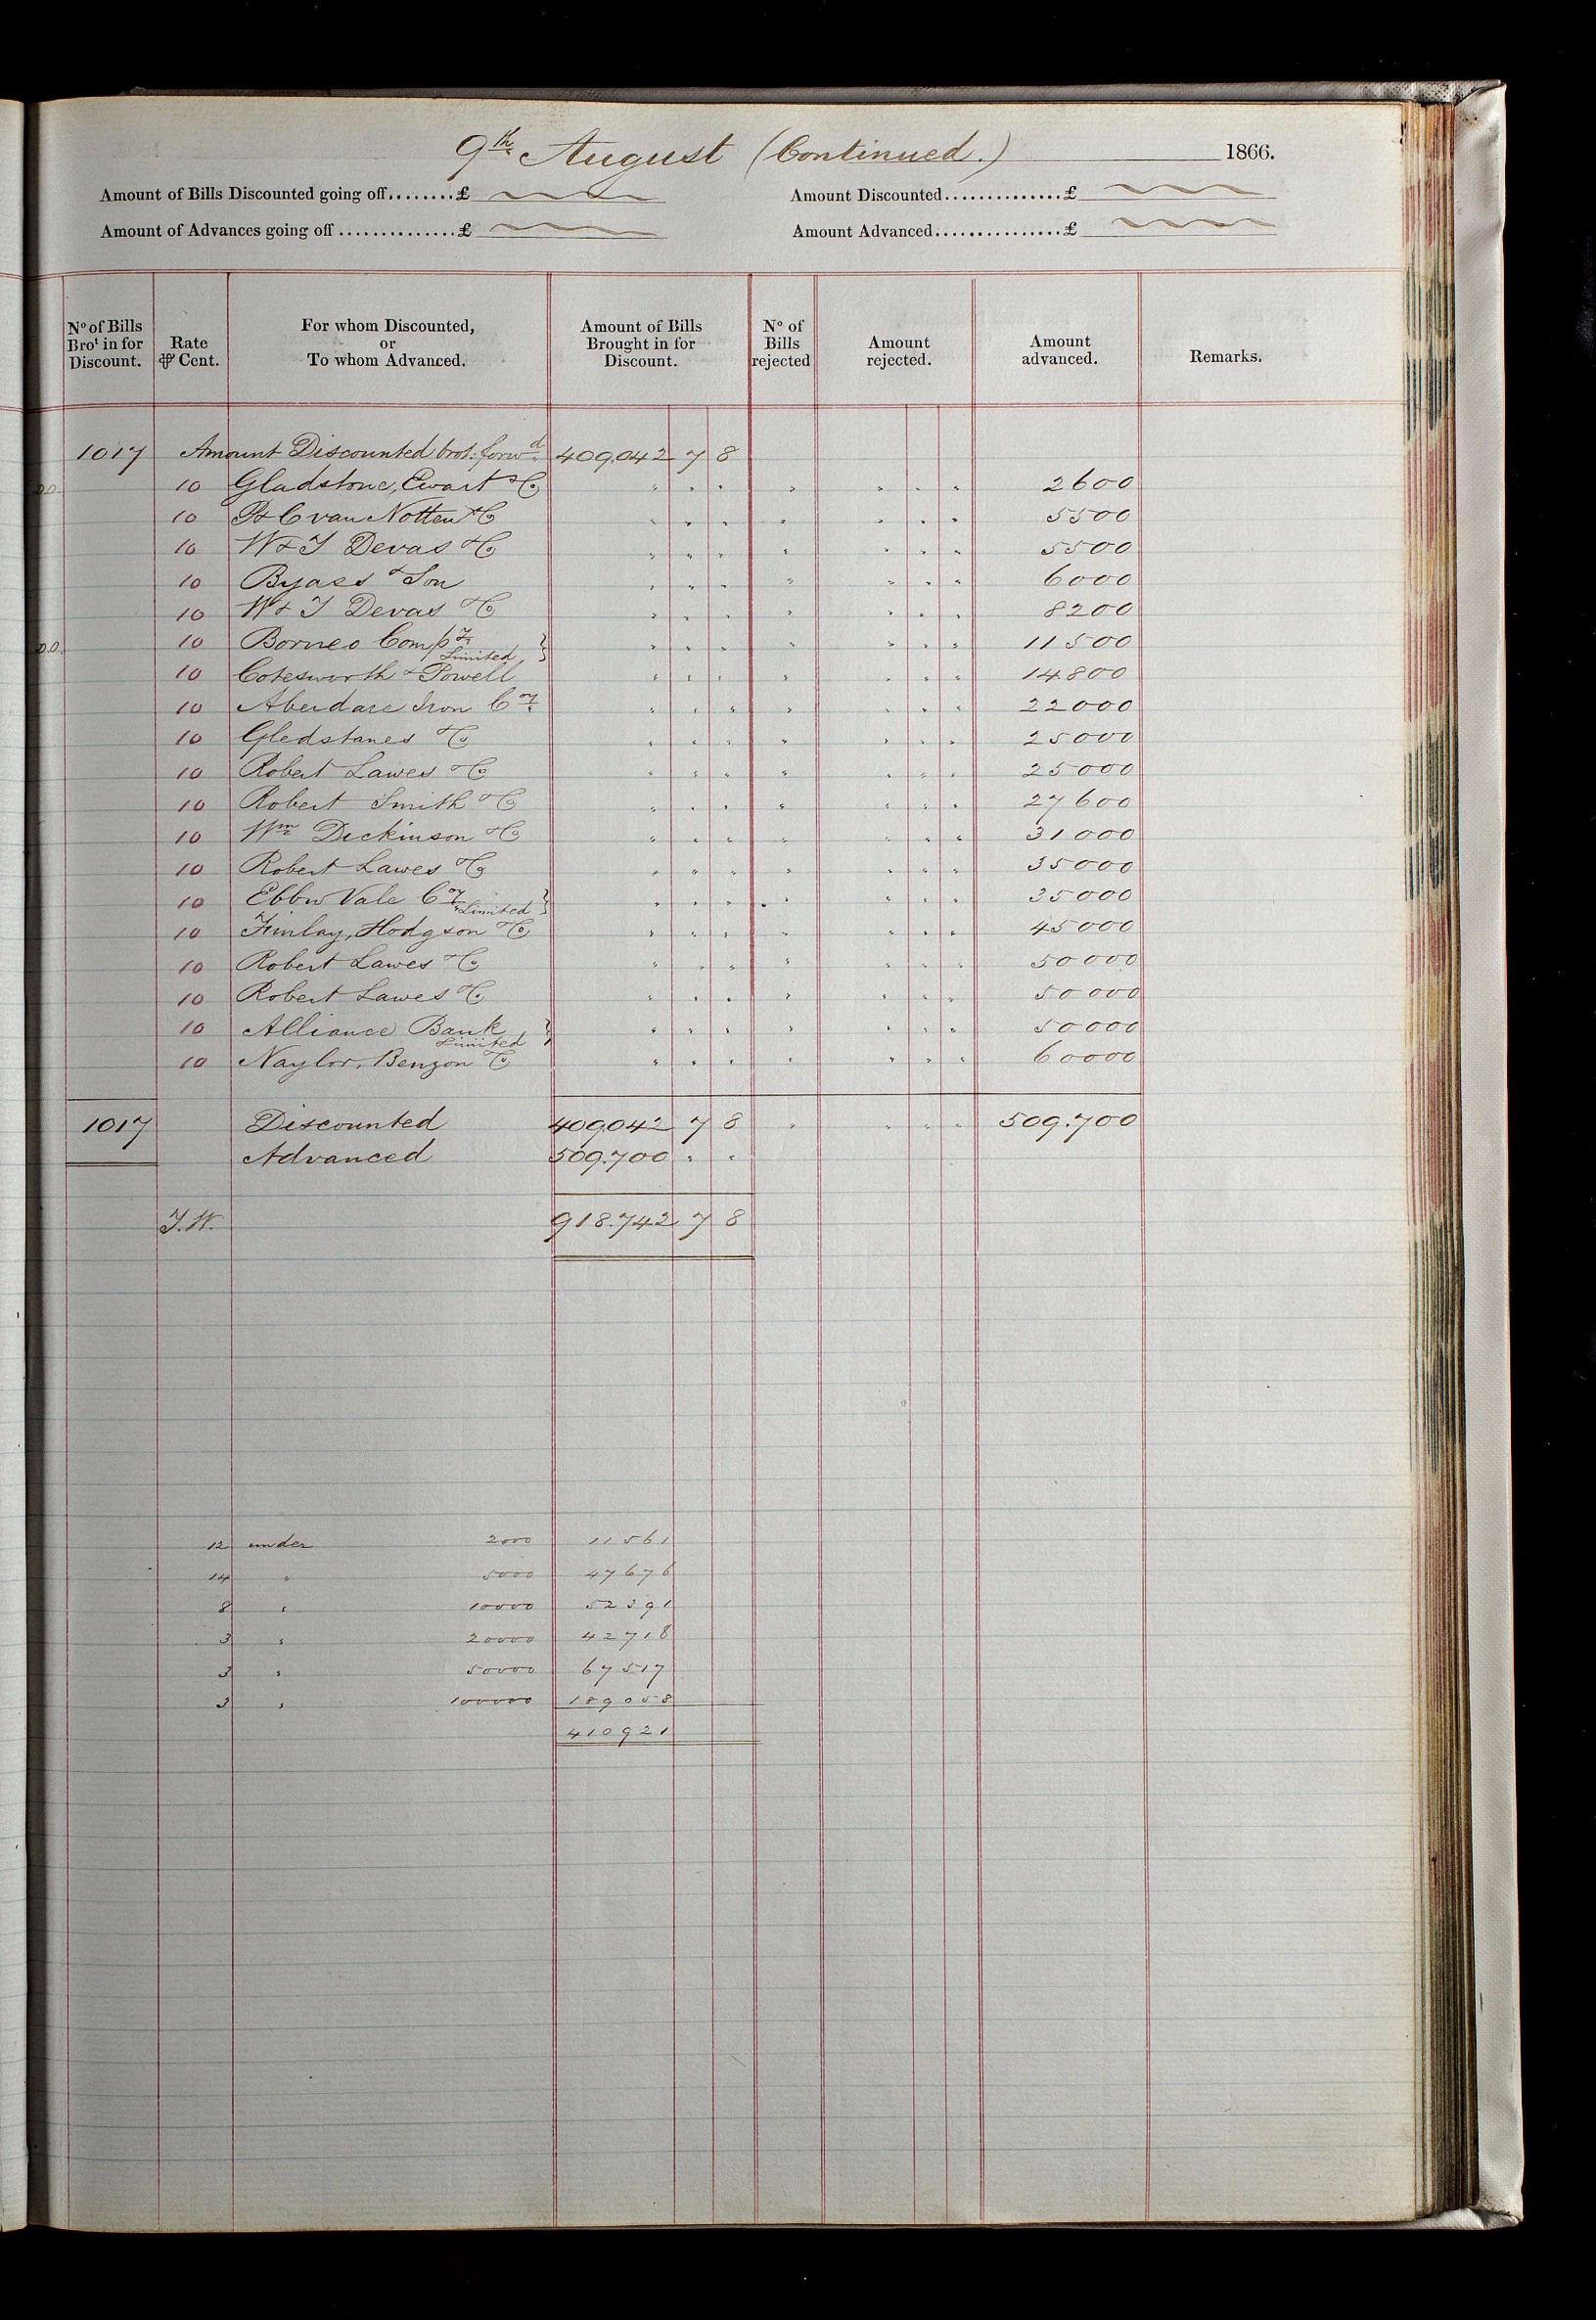 9th August (Continued.) 1866.
Amount of Bills Discounted going off........£
Amount Discounted..............£
Amount of Advances going off..............£
Amount Advanced...............£
No of Bills Brot in for Discount. Rate ⅌ Cent. For whom Discounted, or To whom Advanced. Amount of Bills Brought in for Discount. No of Bills rejected Amount rejected. Amount advanced. Remarks.
1017 Amount Discounted brot: forwd. 409,042 7 8
D.O. 10 Gladstone, Ewart & Co " " " " " " " 2600
10 P & C van Notten & Co " " " " " " " 5500
10 W & T Devas & Co " " " " " " " 5500
10 Byass & Son " " " " " " " 6000
10 W & T Devas & Co " " " " " " " 8200
D.O. 10 Borneo Compy. Limited } " " " " " " " 11500
10 Cotesworth & Powell " " " " " " " 14800
10 Aberdare Iron Coy. " " " " " " " 22000
10 Gledstanes & Co " " " " " " " 25000
10 Robert Lawes & Co " " " " " " " 25000
10 Robert Smith & Co " " " " " " " 27600
10 Wm Dickinson & Co " " " " " " " 31000
10 Robert Lawes & Co " " " " " " " 35000
10 Ebbw Vale Coy. Limited } " " " " " " " 35000
10 Finlay, Hodgson & Co " " " " " " " 45000
10 Robert Lawes & Co " " " " " " " 50000
10 Robert Lawes & Co " " " " " " " 50000
10 Alliance Bank Limited } " " " " " " " 50000
10 Naylor, Benzon & Co " " " " " " " 60000
1017 Discounted 409,042 7 8 " " " " 509.700
Advanced 509.700 " "
J.W. 918.742 7 8
12 under 2000 11561
14 " 5000 47676
8 " 10000 52391
3 " 20000 42718
3 " 50000 67517
3 " 100000 189058
410921